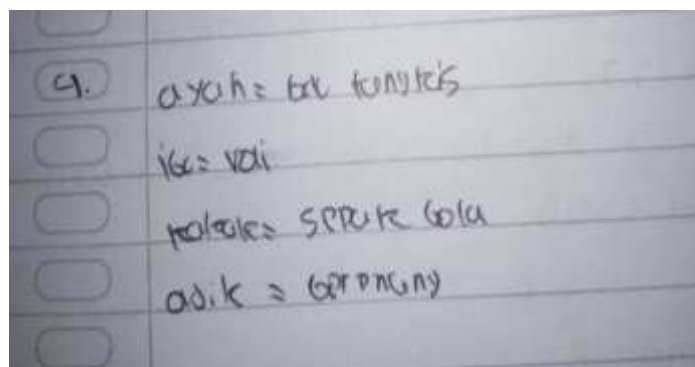 4. ayah = bulu tangkis
ibu = voli
kakak = sepak bola
adik = berenang